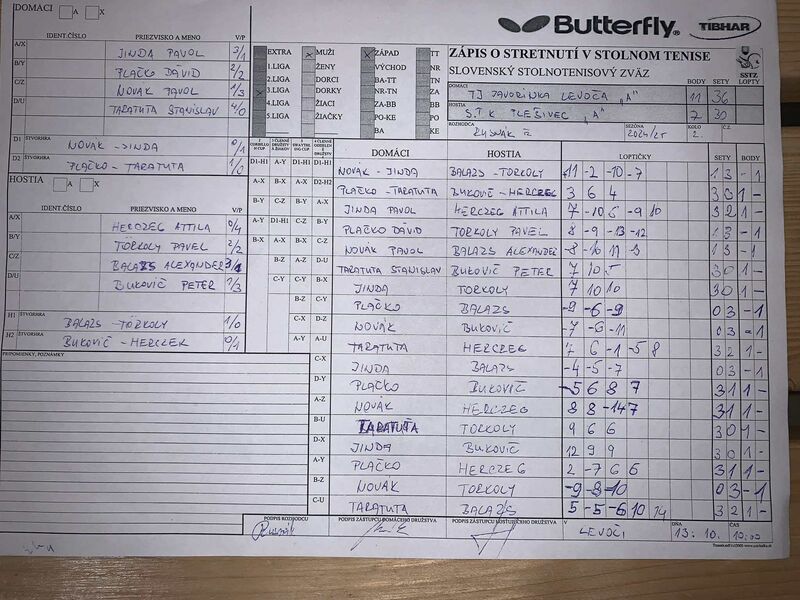 DOMÁCI A X
Butterfly TIBHAR
IDENT.ČÍSLO PRIEZVISKO A MENO V/P
A/X JINDA PAVOL 3/1
B/Y PLAČKO DÁVID 2/2
C/Z NOVÁK PAVOL 1/3
D/U TARATUTA STANISLAV 4/0
D1 ŠTVORHRA NOVÁK - JINDA 0/1
D2 ŠTVORHRA PLAČKO - TARATUTA 1/0
HOSTIA A X
IDENT.ČÍSLO PRIEZVISKO A MENO V/P
A/X HERCZEG ATTILA 0/4
B/Y TÖRKOLY PAVEL 2/2
C/Z BALAZS ALEXANDER 3/1
D/U BUKOVIČ PETER 1/3
H1 ŠTVORHRA BALAZS - TÖRKOLY 1/0
H2 ŠTVORHRA BUKOVIČ - HERCZEK 0/1
PRIPOMIENKY, POZNÁMKY
EXTRA x MUŽI x ZÁPAD TT
1.LIGA ŽENY VÝCHOD NR
2.LIGA DORCI BA-TT TN
x 3.LIGA DORKY NR-TN ZA
4.LIGA ŽIACI ZA-BB BB
5.LIGA ŽIAČKY PO-KE PO
BA KE
ZÁPIS O STRETNUTÍ V STOLNOM TENISE
SLOVENSKÝ STOLNOTENISOVÝ ZVÄZ
SSTZ
BODY SETY LOPTY
DOMÁCI TJ JAVORINKA LEVOČA "A" 11 36
HOSTIA S.T.K PLEŠIVEC "A" 7 30
ROZHODCA SEZÓNA 2024/25 KOLO 2. Č.Z.
DOMÁCI HOSTIA LOPTIČKY SETY BODY
D1-H1 A-Y D1-H1 D1-H1 NOVÁK - JINDA BALAZS - TÖRKOLY 11 -2 -10 -7 1 3 - 1
A-X B-X A-X D2-H2 PLAČKO - TARATUTA BUKOVIČ - HERCZEG 3 6 4 3 0 1 -
B-Y C-Z B-Y A-X JINDA PAVOL HERCZEG ATTILA 7 -10 5 -9 10 3 2 1 -
A-Y D1-H1 C-Z B-Y PLAČKO DÁVID TÖRKOLY PAVEL 8 -9 -13 -12 1 3 - 1
B-X A-X A-Y C-Z NOVÁK PAVOL BALAZS ALEXANDER 1 3 - 1
B-Z A-Z D-U TARATUTA STANISLAV BUKOVIČ PETER 7 10 5 3 0 1 -
C-Y C-Y B-X A-Y JINDA TÖRKOLY 7 10 10 3 0 1 -
B-Z C-Y PLAČKO BALAZS -9 -6 -9 0 3 - 1
C-X D-Z NOVÁK BUKOVIČ -7 -6 -11 0 3 - 1
A-Y A-U TARATUTA HERCZEG 7 6 -1 -5 8 3 2 1 -
C-X JINDA BALAZS -4 -5 -7 0 3 - 1
D-Y PLAČKO BUKOVIČ -5 6 8 7 3 1 1 -
A-Z NOVÁK HERCZEG 8 8 -14 7 3 1 1 -
B-U TARATUTA TÖRKOLY 9 6 6 3 0 1 -
D-X JINDA BUKOVIČ 12 9 9 3 0 1 -
A-Y PLAČKO HERCZEG 2 -7 6 6 3 1 1 -
B-Z NOVÁK TÖRKOLY -9 -8 -10 0 3 - 1
C-U TARATUTA BALAZS 5 -5 -6 10 14 3 2 1 -
PODPIS ROZHODCU PODPIS ZÁSTUPCU DOMÁCEHO DRUŽSTVA PODPIS ZÁSTUPCU HOSŤUJÚCEHO DRUŽSTVA V LEVOČI DŇA 13.10. ČAS 10:00